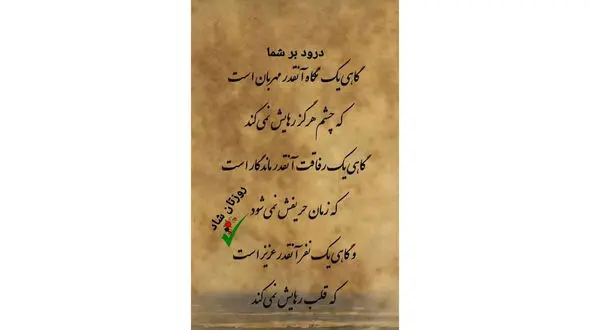 درود بر شما
گاهی یک نگاه آنقدر مهربان است
که چشم هرگز رهایش نمی کند
گاهی یک رفاقت آنقدر ماندگار است
که زمان حریفش نمی شود
روزتان شاد
و گاهی یک نفر آنقدر عزیز است
که قلب رهایش نمی کند